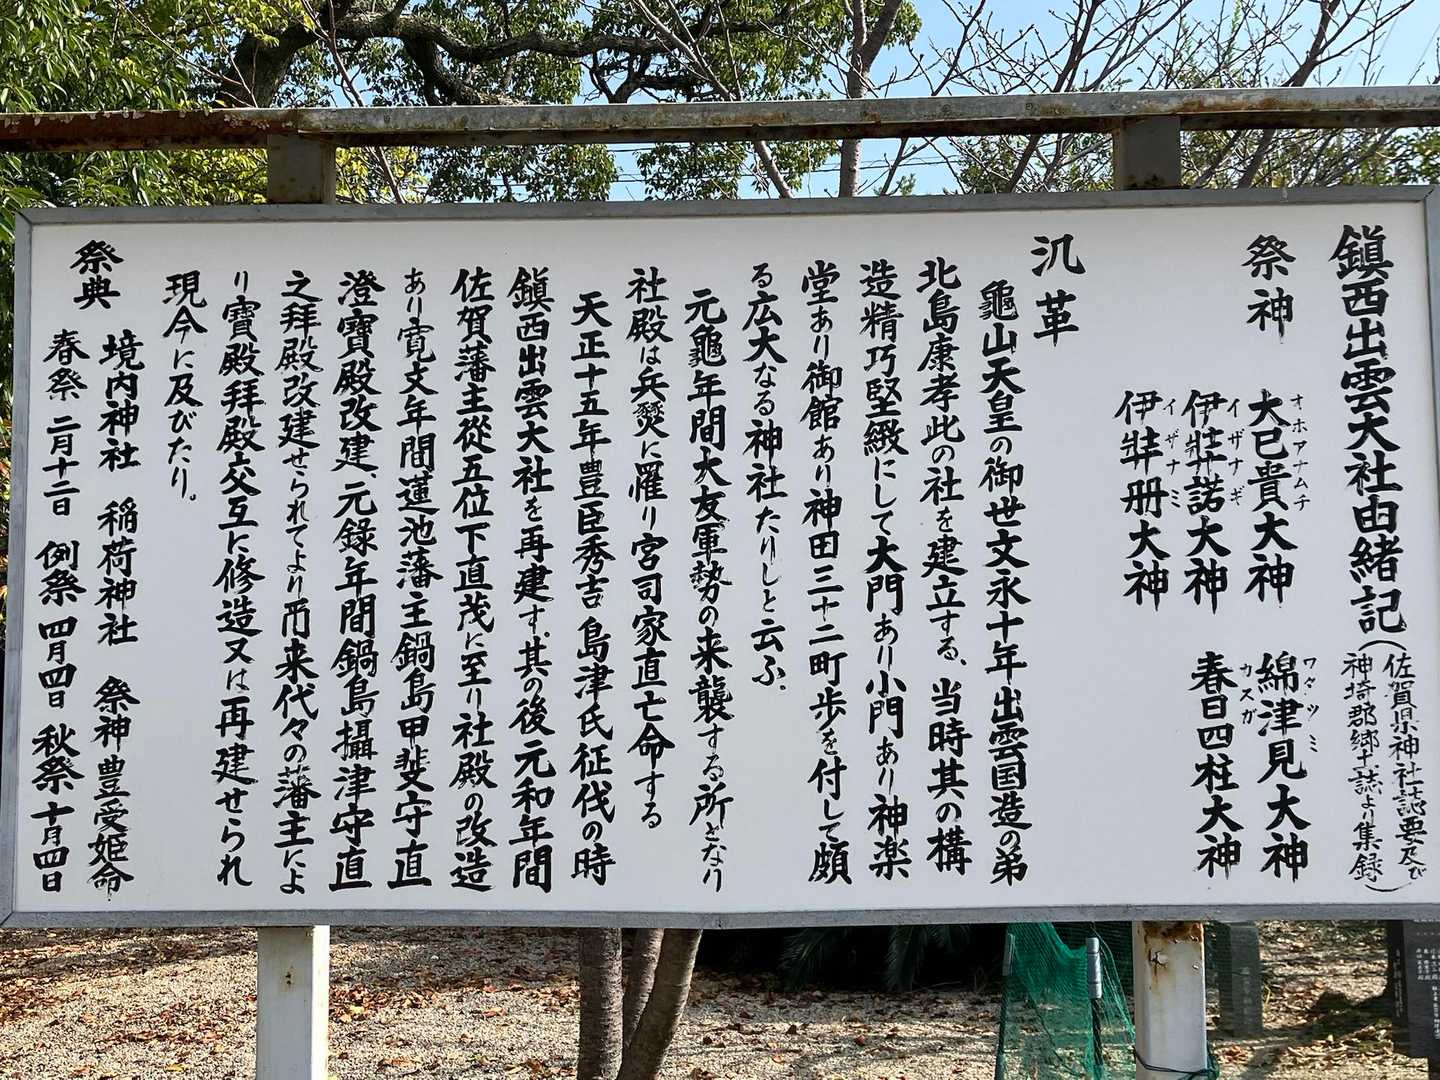 鎮西出雲大社由緒記(佐賀県神社誌要及び
神埼郡郷土誌より集録)
祭神 大已貴大神 綿津見大神
オホアナムチ ワタツミ
伊弉諾大神 春日四柱大神
イザナギ カスガ
伊弉册大神
イザナミ
沿革
龜山天皇の御世文永十年出雲国造の弟
北島康孝此の社を建立する、当時其の構
造精巧堅緻にして大門あり小門あり神楽
堂あり御館あり神田三十二町歩を付して頗
る広大なる神社たりしと云ふ.
元龜年間大友軍勢の来襲する所となり
社殿は兵燹に罹り宮司家直亡命する
天正十五年豊臣秀吉島津氏征伐の時
鎮西出雲大社を再建す.其の後元和年間
佐賀藩主從五位下直茂に至り社殿の改造
あり寛文年間蓮池藩主鍋島甲斐守直
澄寶殿改建、元録年間鍋島攝津守直
之拜殿改建せられてより而来代々の藩主によ
り寶殿拜殿交互に修造又は再建せられ
現今に及びたり。
境内神社 稲荷神社 祭神 豊受姫命
祭典 春祭 二月十二日 例祭 四月四日 秋祭 十月四日